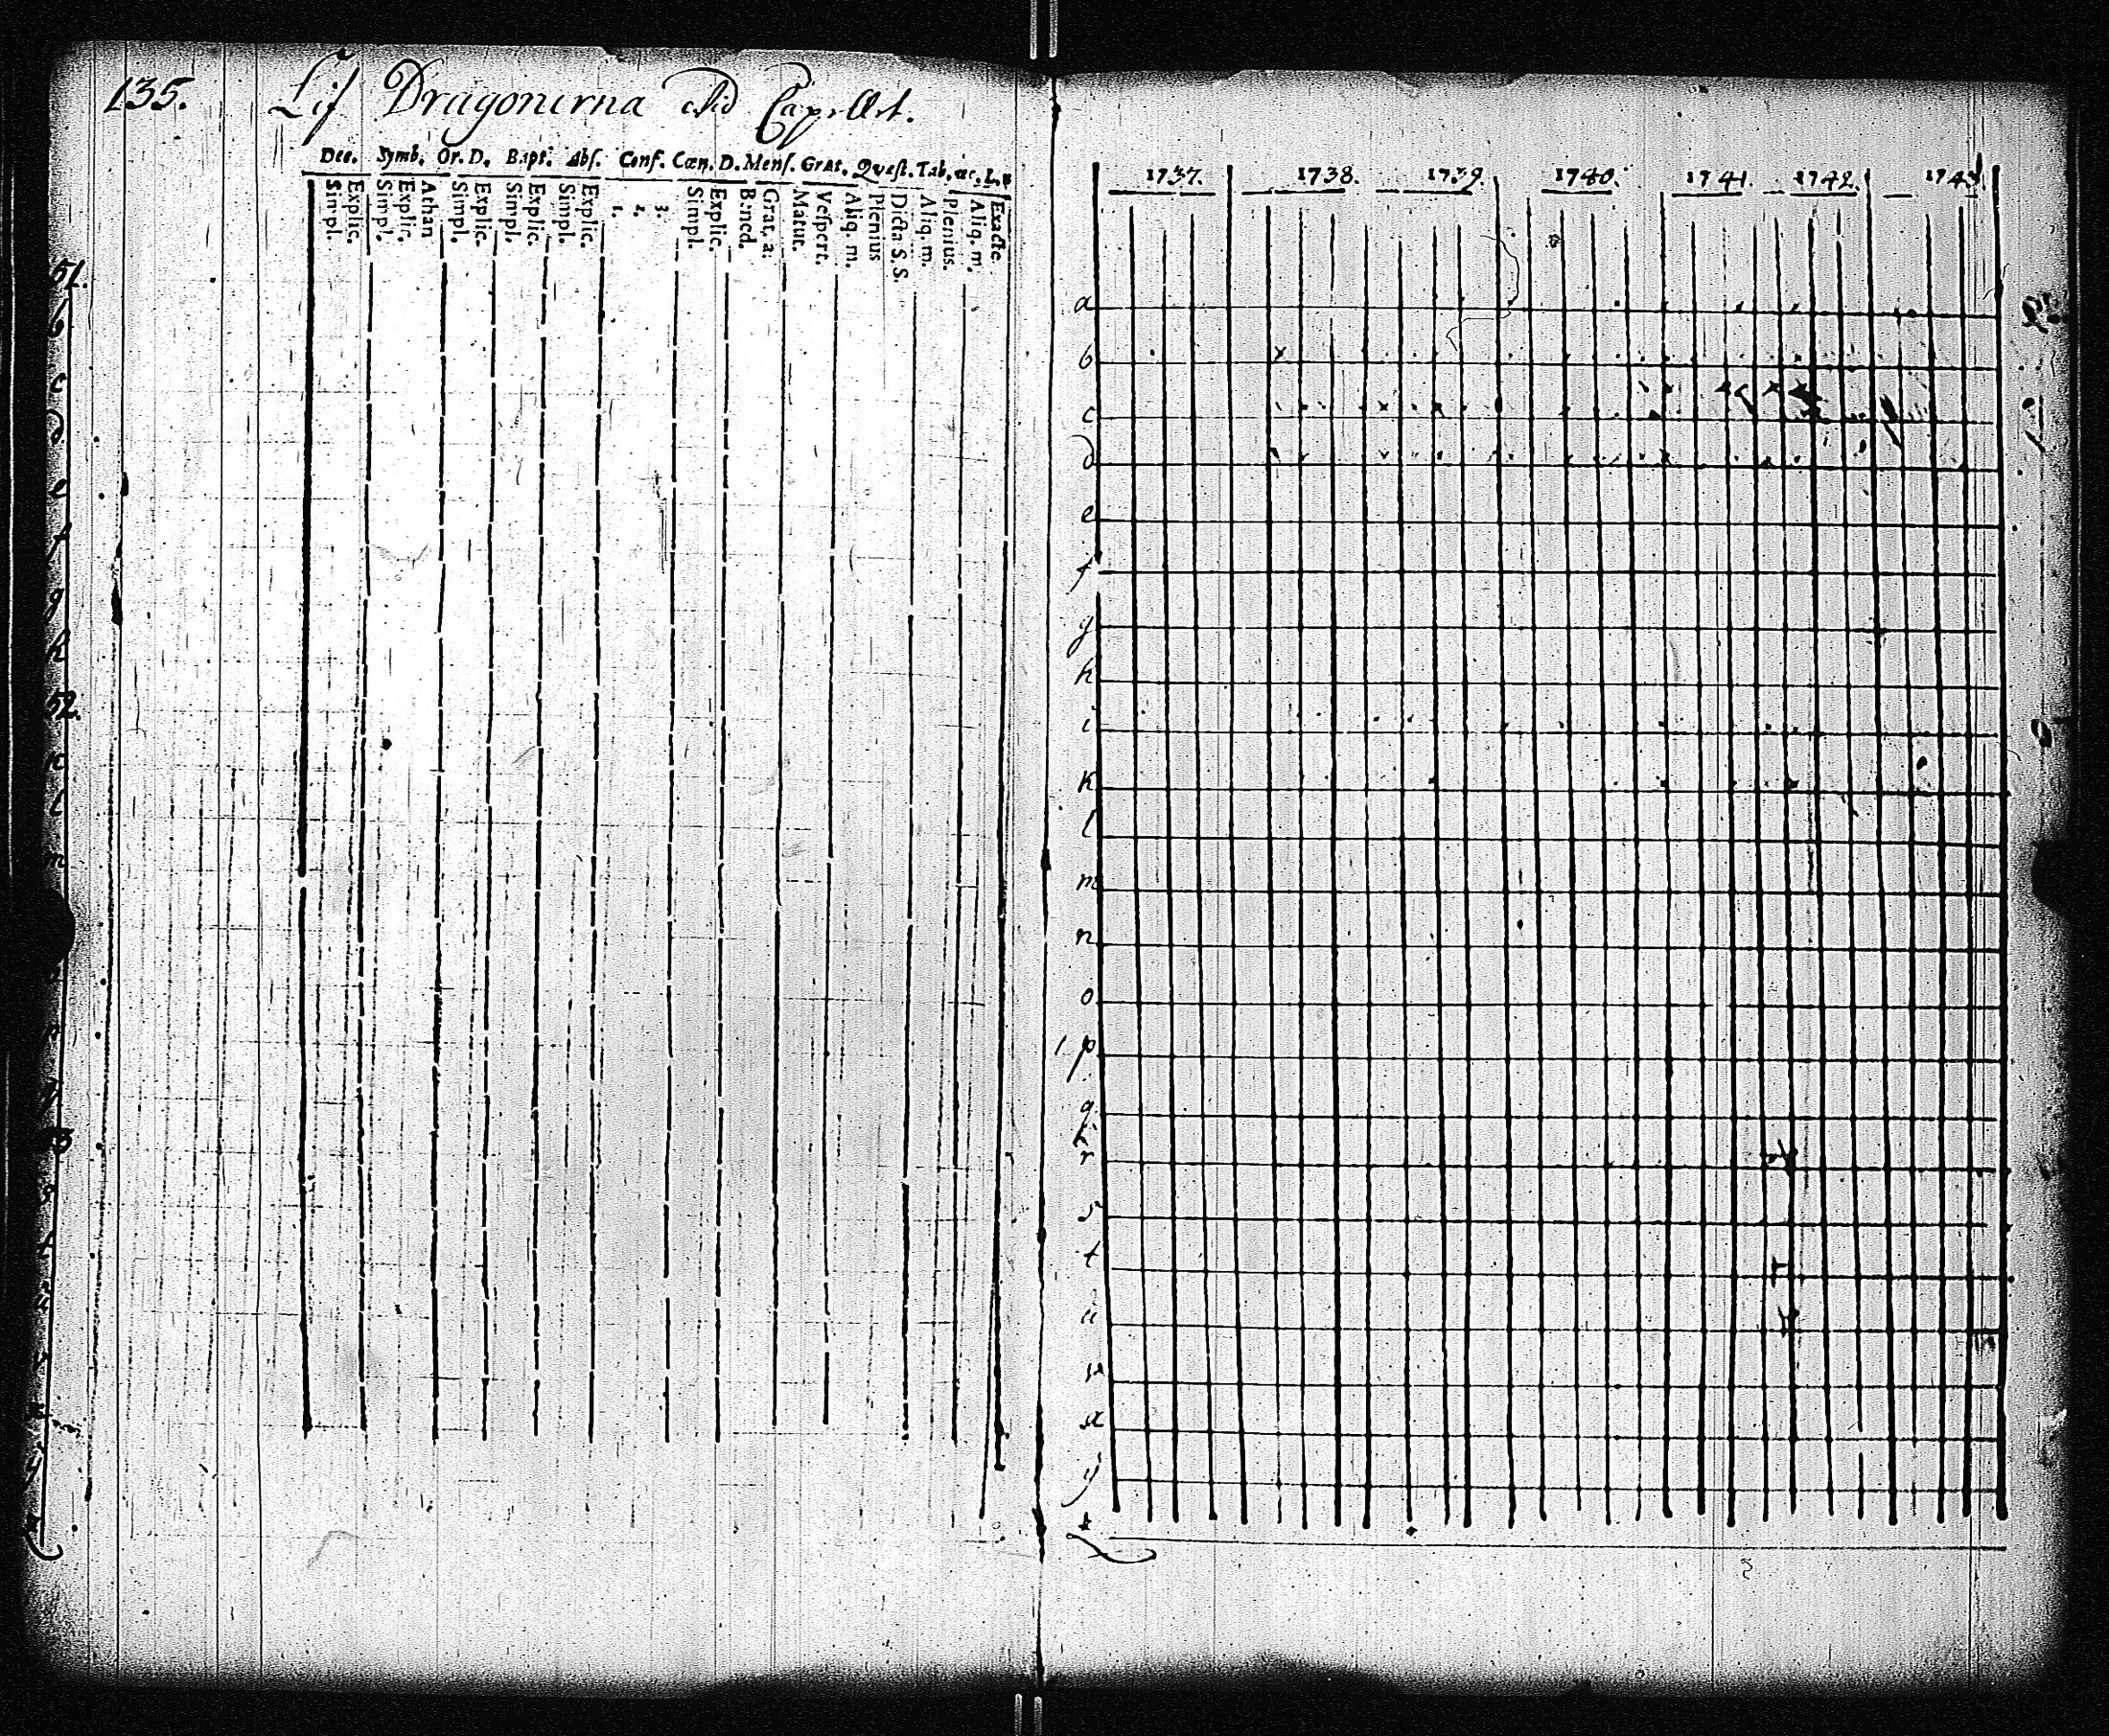 135. Lif Dragonerna wid Capellet.
Dec. Symb. Or. D. Bapt. Abs. Conf. Cœn. D. Mens. Grat. Quæst. Tab. œc.
Simpl. Explic. Simpl. Explic. Athan Simpl. Explic. Simpl. Explic. Simpl. Explic. 1. 2. 3. Simpl. Explic. Bened. Grat. a: Matut. Vespert. Aliq. m. Plenius Dicta S. S. Aliq. m. Plenius. Aliq. m. Exacte.
51.
b
c
d
e
f
g
h
52.
l
m
1737. 1738. 1739. 1740. 1741. 1742. 1743
a
b
c
d
e
f
g
h
i
k
l
m
n
o
p
q
r
s
t
u
w
x
y